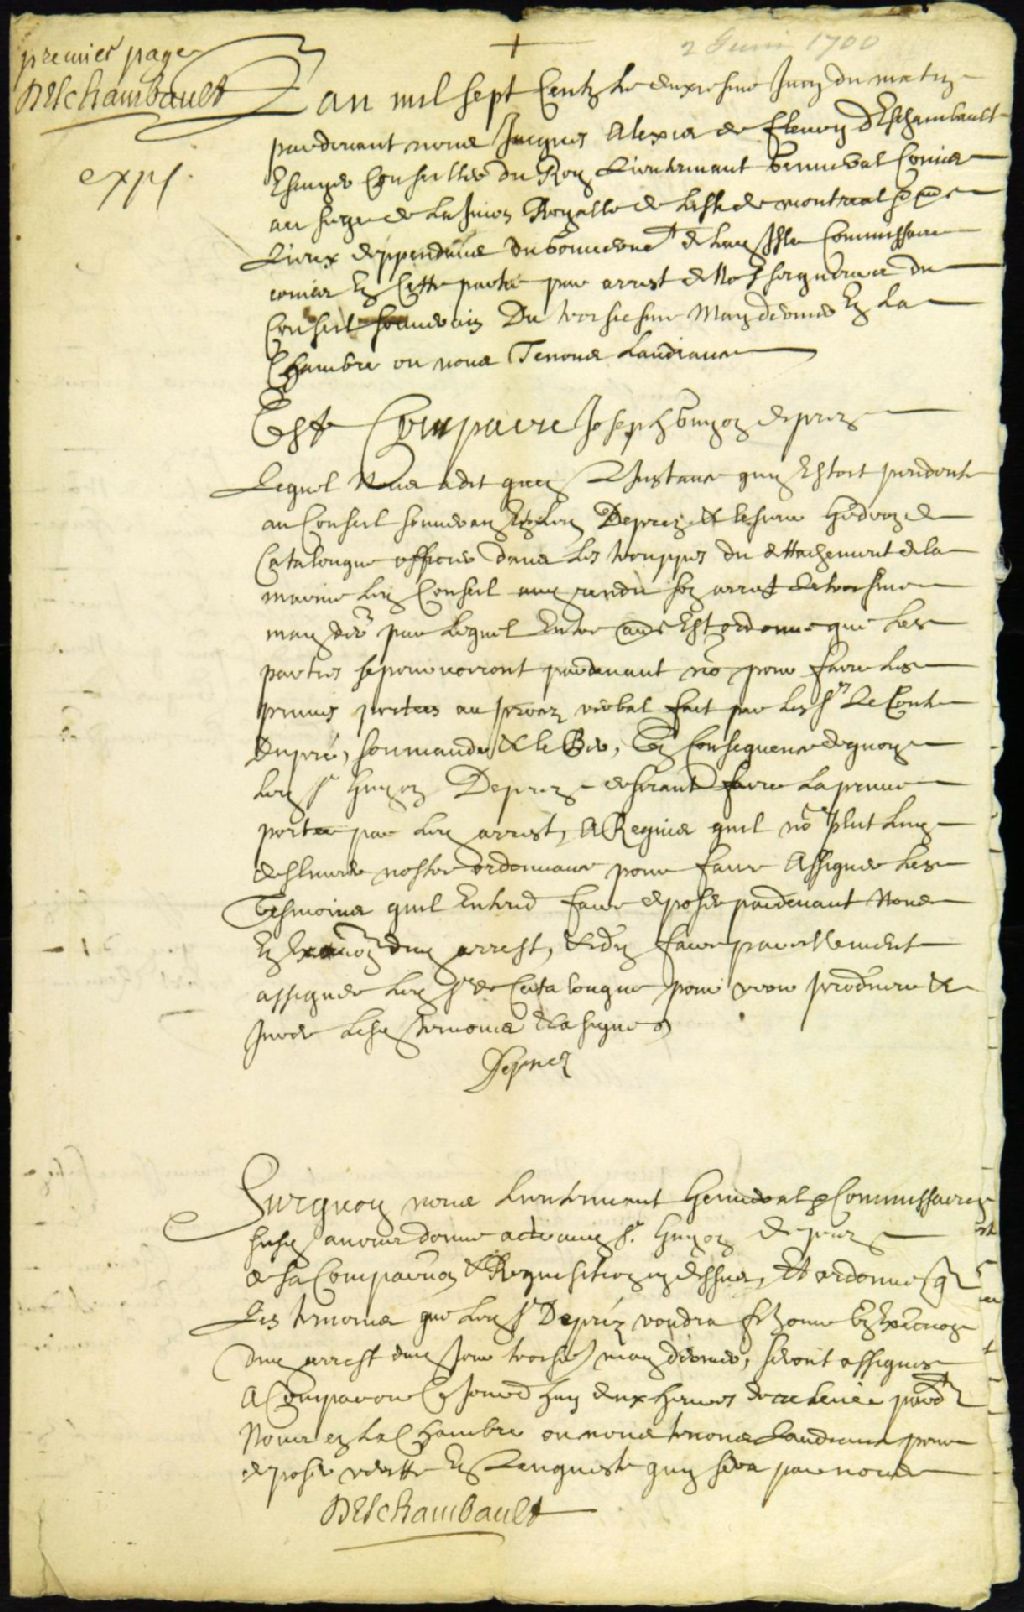 premier page
DEschambault
expf.
2 Juin 1700
Lan mil sept Centz le deuxiesme Juin du matin
pardevant nous Jacques Alexis de fleury dEschambault
Escuyer Conseiller du Roy Lieutenant general Comis
au siege de la Juon Royalle de Lisle de montreal
Lieux deppendans du gouvernemt de lad Isle Commissaire
comis En Cette partie par arrest de Nosseigneurs du
Conseil souverain Du troisiesme May dernier En La
Chambre ou nous Tenons Laudiance
Est Comparu Joseph Guyon deprez
Lequel Nous a dit quen LInstance quy Estoit pendente
au Conseil souverain Entre luy Deprez & le sieur Gedeon de
Catalougne officier dans Les trouppes du detachement de la
marine led Conseil auroit rendu son arrest le troisieme
may der par lequel Entre aues Est ordonne que Les
parties se pourvoiront pardevant no pour faire Les
preuves portees au proces verbal fait par les Srs Le Conte
Dupré, soumande & le Ber, En Consequence de quoy
led Sr Guyon Deprez desirant faire La preuve
portee par led arrest, A Requis quil no plut luy
deslivrer nostre ordonnance pour faire Assigner Les
Tesmoins quil Entend faire deposer pardevant Nous
En Execuon dud arrest, & dy faire pareillement
assigner led Sr de Catalougne pour veoir produire &
Jurer lesd temoins & a signé
Deprez
Surquoy nous Lieutenant General & Commissaire
susd avons donne acte aud Sr. Guyon de prez
de sa Comparuon & Requisition cy dessus, Et ordonne q
Les temoins que led Sr Depréz voudra fe ouir En Execuon
dud arrest dud jour trois may dernier, seront assignes
A Comparoir Ce jourdhuy deux heures de relevée pardt
Nous en La Chambre ou nous tenons Laudiance pour
deposer veritte En Lenqueste quy sera par nous
DEschambault